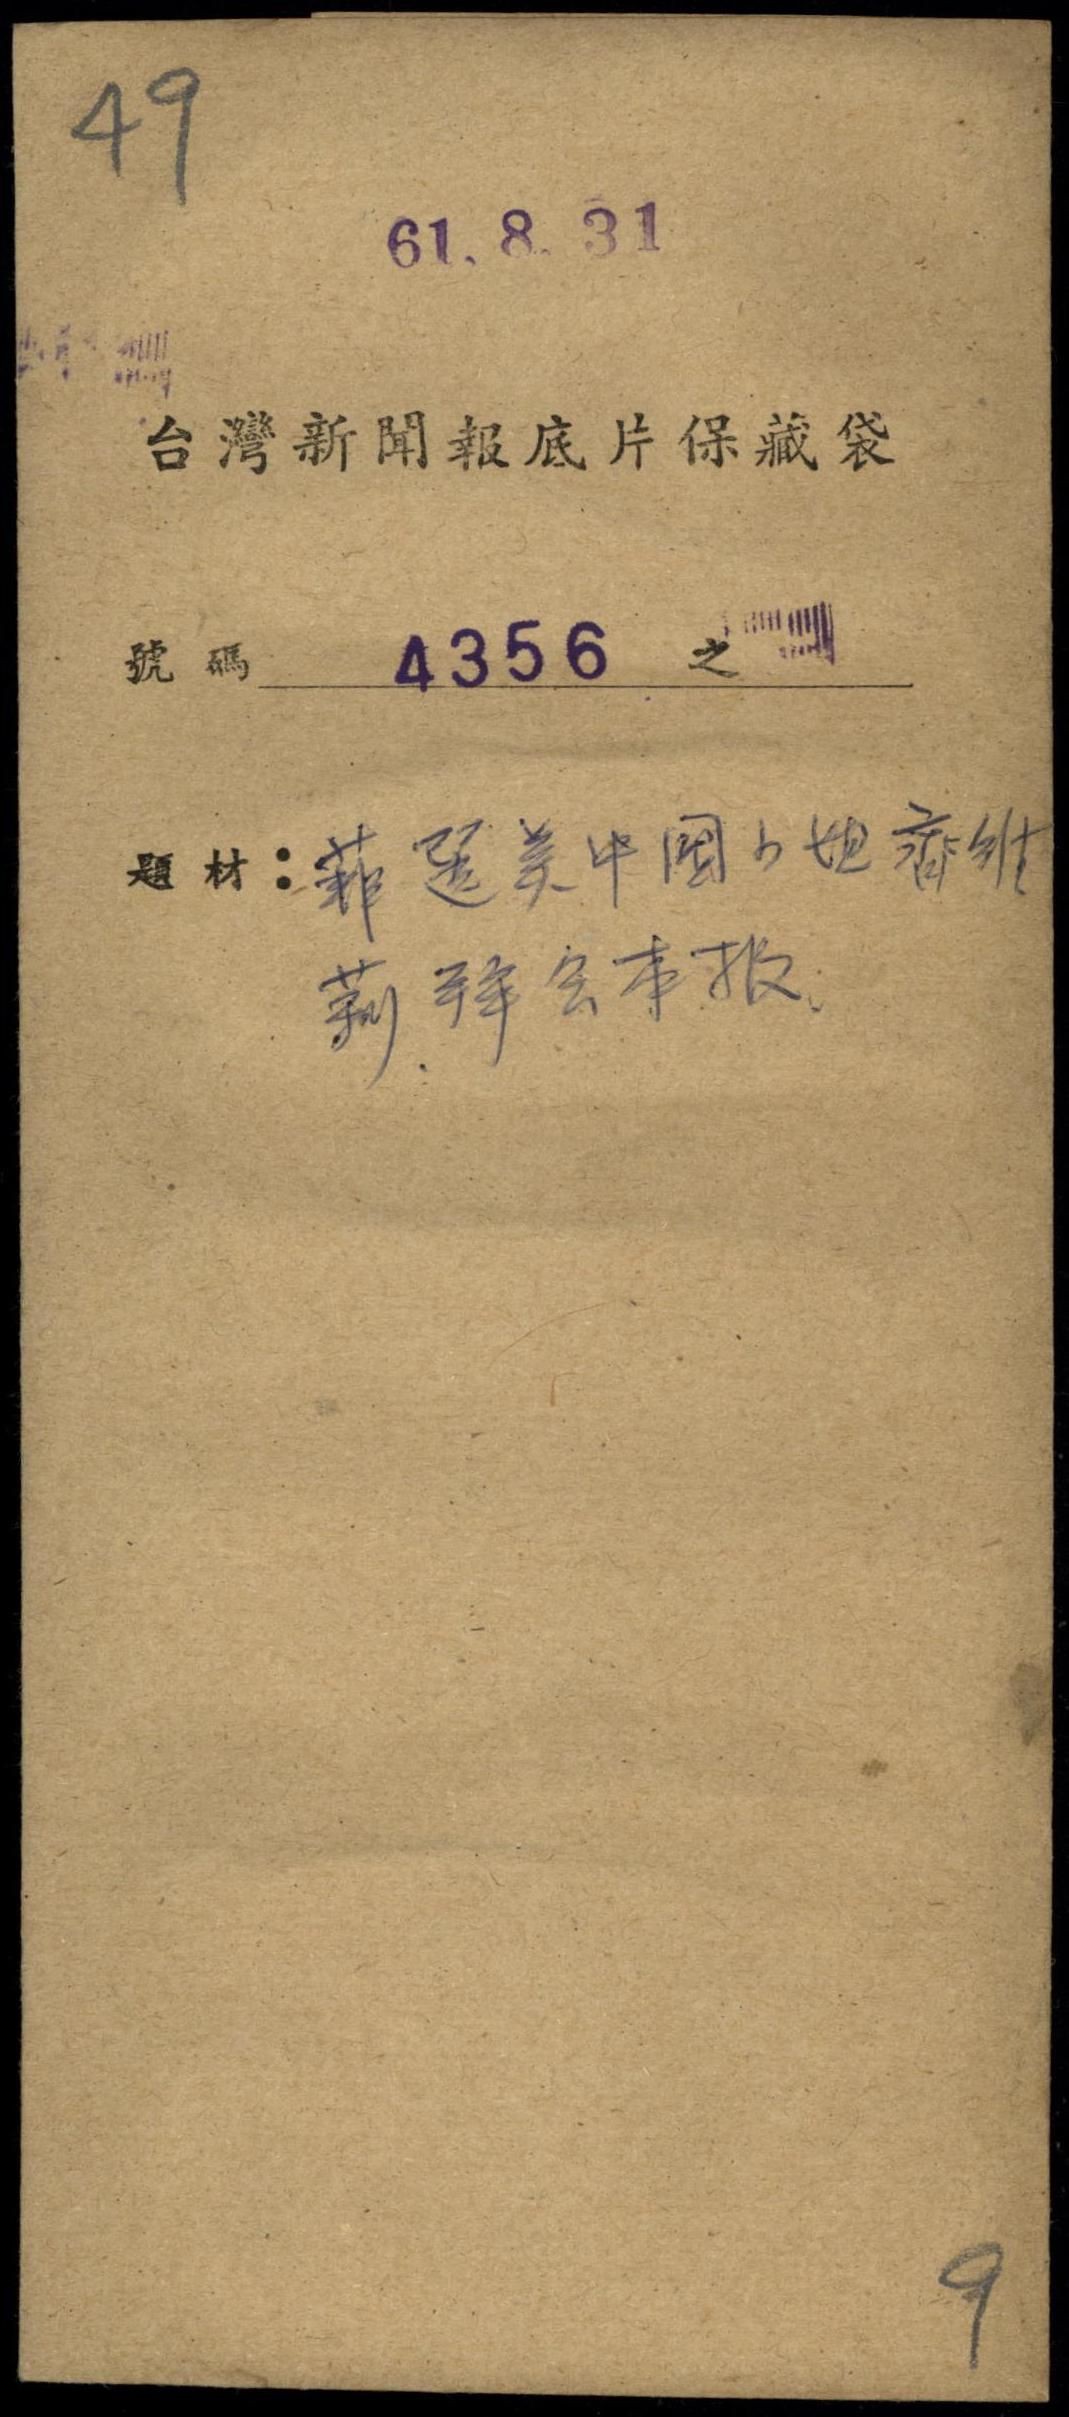 49
61.8.31
台灣新聞報底片保藏袋
號碼 4356 之
題材：菲選美中國小姐齊維
莉拜会本报
9